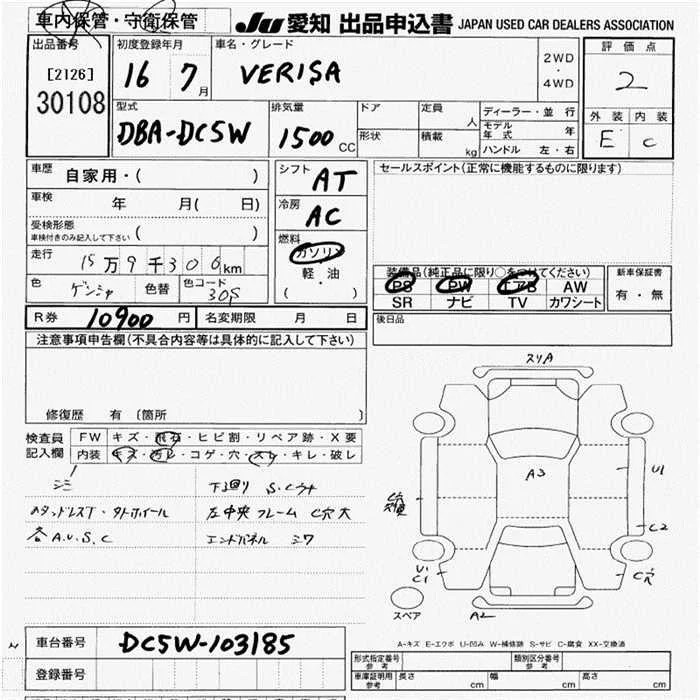 車内保管・守衛保管
JU 愛知 出品申込書 JAPAN USED CAR DEALERS ASSOCIATION
出品番号
[2126]
30108
初度登録年月
16 7 月
車名・グレード
VERISA
2WD
・
4WD
評価点
2
外装 内装
E C
型式
DBA-DC5W
排気量
1500 CC
ドア
形状
定員 人
積載 kg
ディーラー・並行
モデル年式 年
ハンドル 左・右
車歴 自家用・( )
車検 年 月( 日)
受検形態
車検付きのみ記入して下さい ( )
走行 15万9千306km
色 ゲンシャ 色替 色コード 30S
シフト AT
冷房 AC
燃料
ガソリン
軽・油
( )
セールスポイント(正常に機能するものに限ります)
装備品(純正品に限り○をつけてください)
PS PW エアB AW
SR ナビ TV カワシート
新車保証書
有・無
後日品
R券 10900 円 名変期限 月 日
注意事項申告欄(不具合内容等は具体的に記入して下さい)
修復歴 有〔箇所 〕
検査員記入欄
FW キズ・飛石・ヒビ割・リペア跡・X要
内装 キズ・汚レ・コゲ・穴・スレ・キレ・破レ
シミ 下廻り S.Cウチ
左中央フレーム C穴大
各A.U.S.C エンドパネル シワ
スリA
A3
U1
C2
C穴
U1
C1
A2
スペア
A-キズ E-エクボ U-凹み W-補修跡 S-サビ C-腐食 XX-交換済
車台番号 DC5W-103185
登録番号
型式指定番号 参考
類別区分番号 参考
車庫証明用 参考 長さ cm 幅 cm 高さ cm